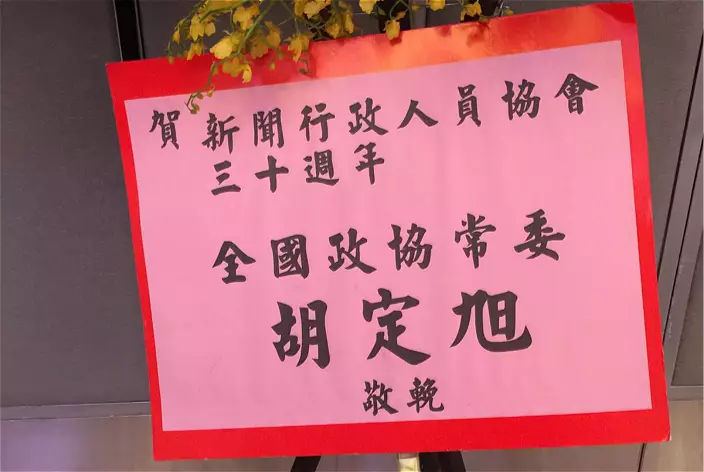 賀 新聞行政人員協會
三十週年
全國政協常委
胡定旭
敬輓